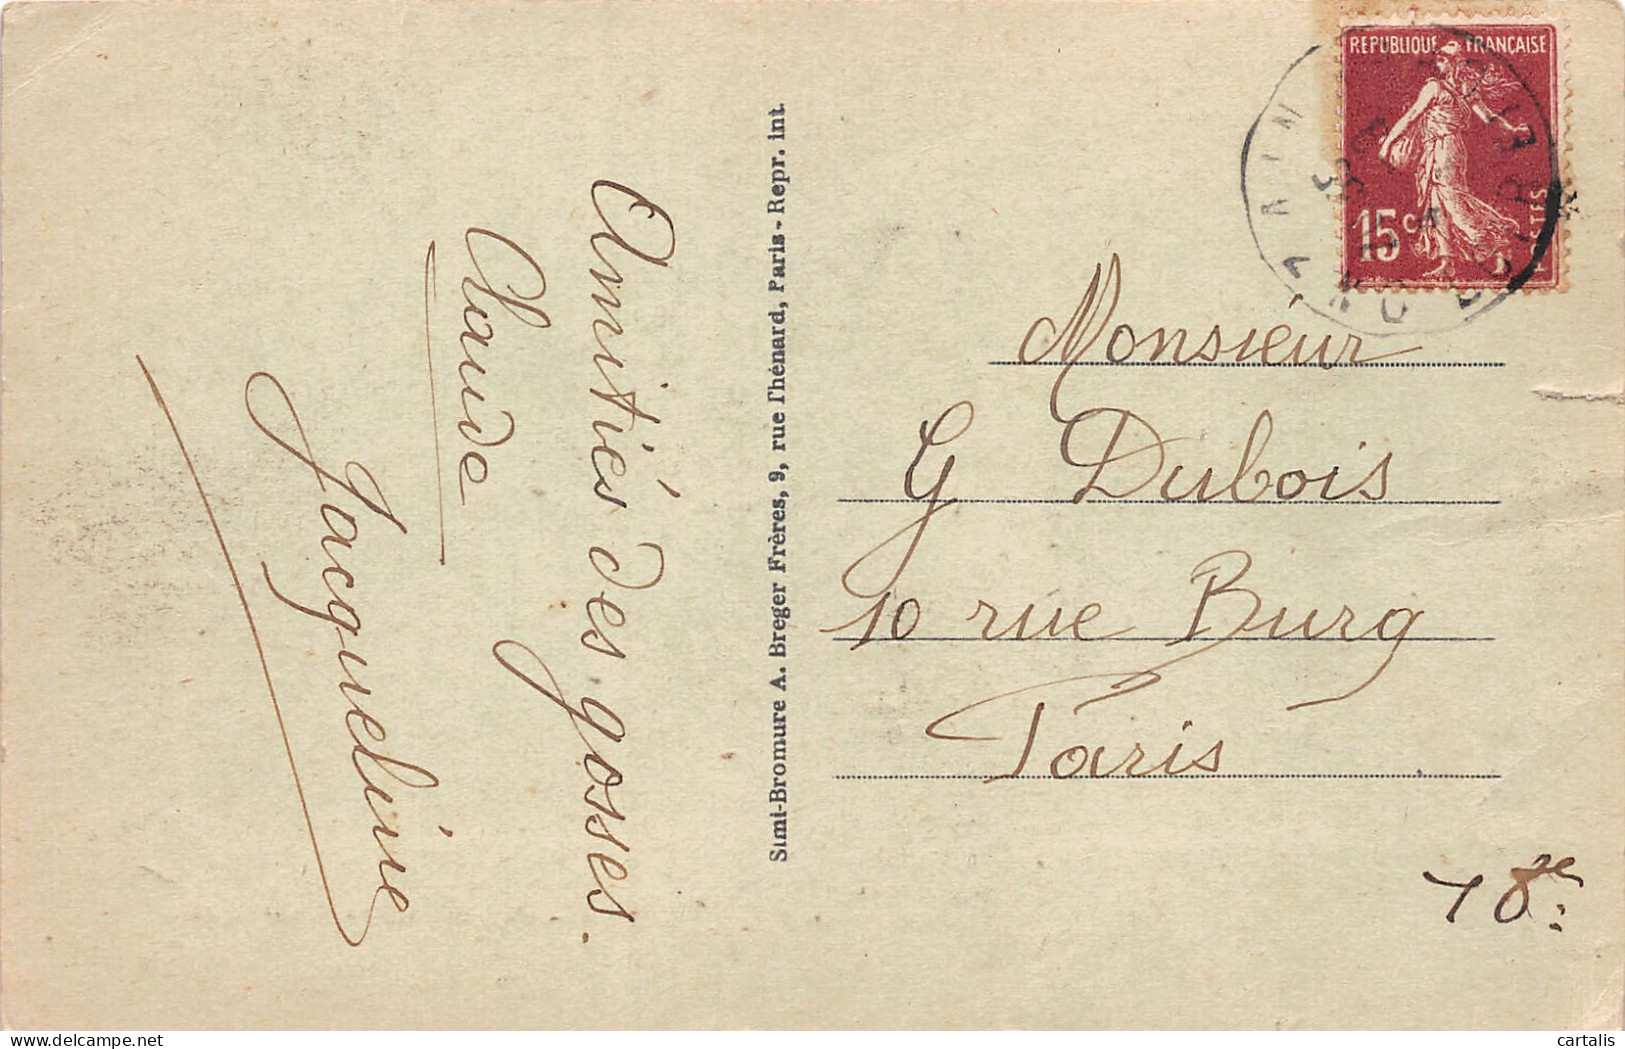 Amitiés des gosses.
Claude
Jacqueline
Simi-Bromure A. Breger Frères, 9, rue Thénard, Paris - Repr. int.
REPUBLIQUE FRANÇAISE
15c
POSTES
Monsieur
G Dubois
10 rue Burq
Paris
18e
cartalis